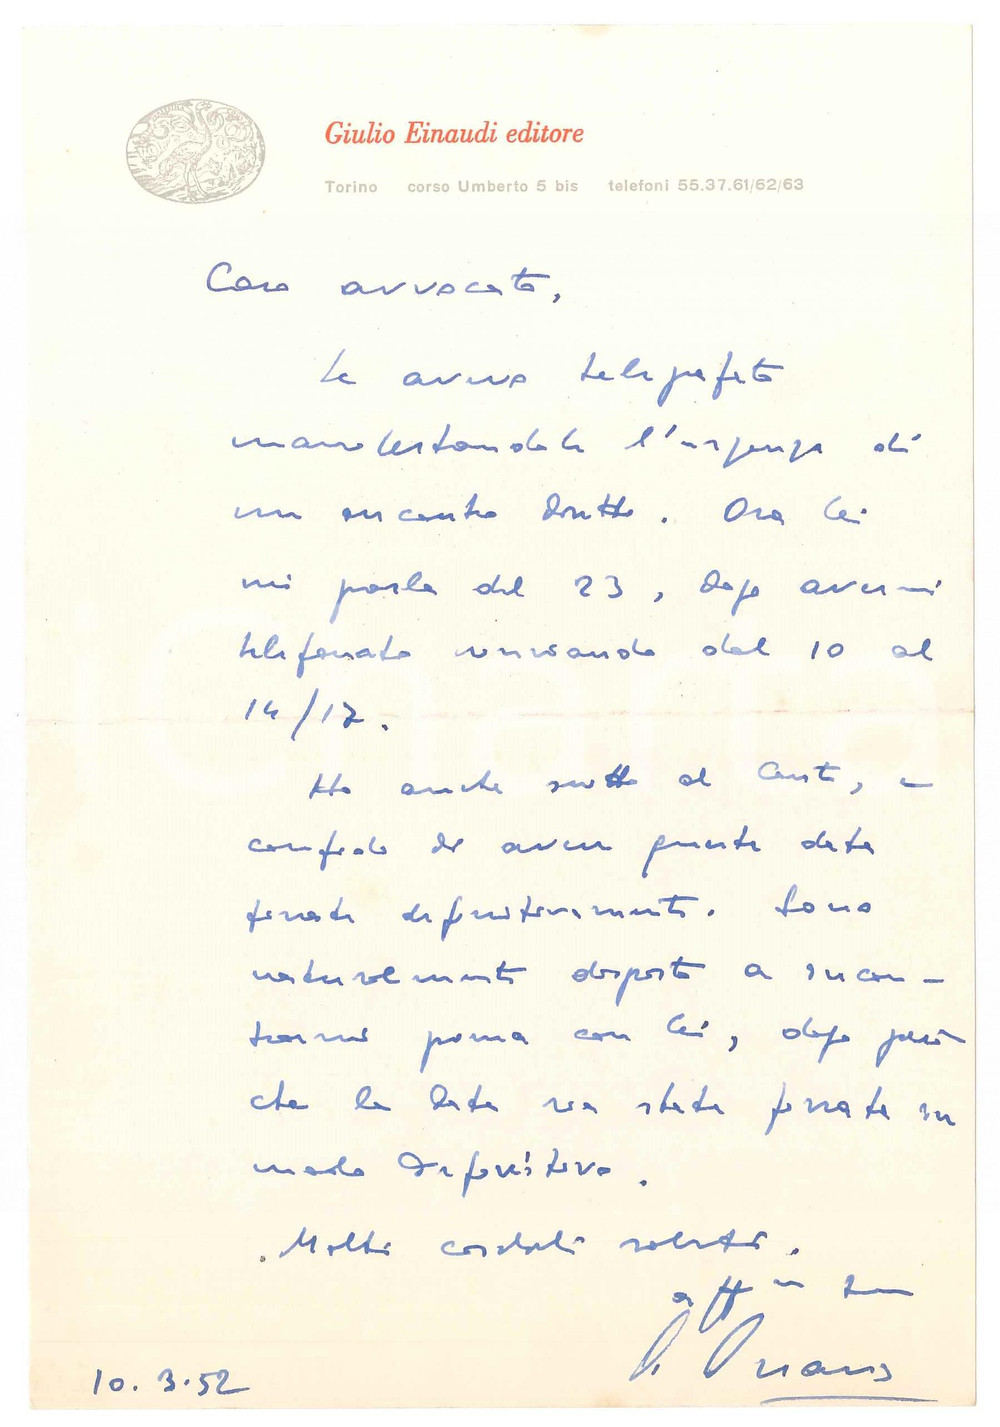 Giulio Einaudi editore
Torino corso Umberto 5 bis telefoni 55.37.61/62/63
Caro avvocato,
Le avevo telegrafato
manifestandole l'urgenza di
un incontro diretto. Ora lei
mi parla del 23, dopo avermi
telefonato rinviando dal 10 al
14/17.
Ho anche scritto al Conte, e
confido di avere questa data
fissata definitivamente. Sono
naturalmente disposto a incon-
trarmi prima con lei, dopo però
che la data sia stata fissata in
modo definitivo.
Molti cordiali saluti.
aff.m suo
10.3.52